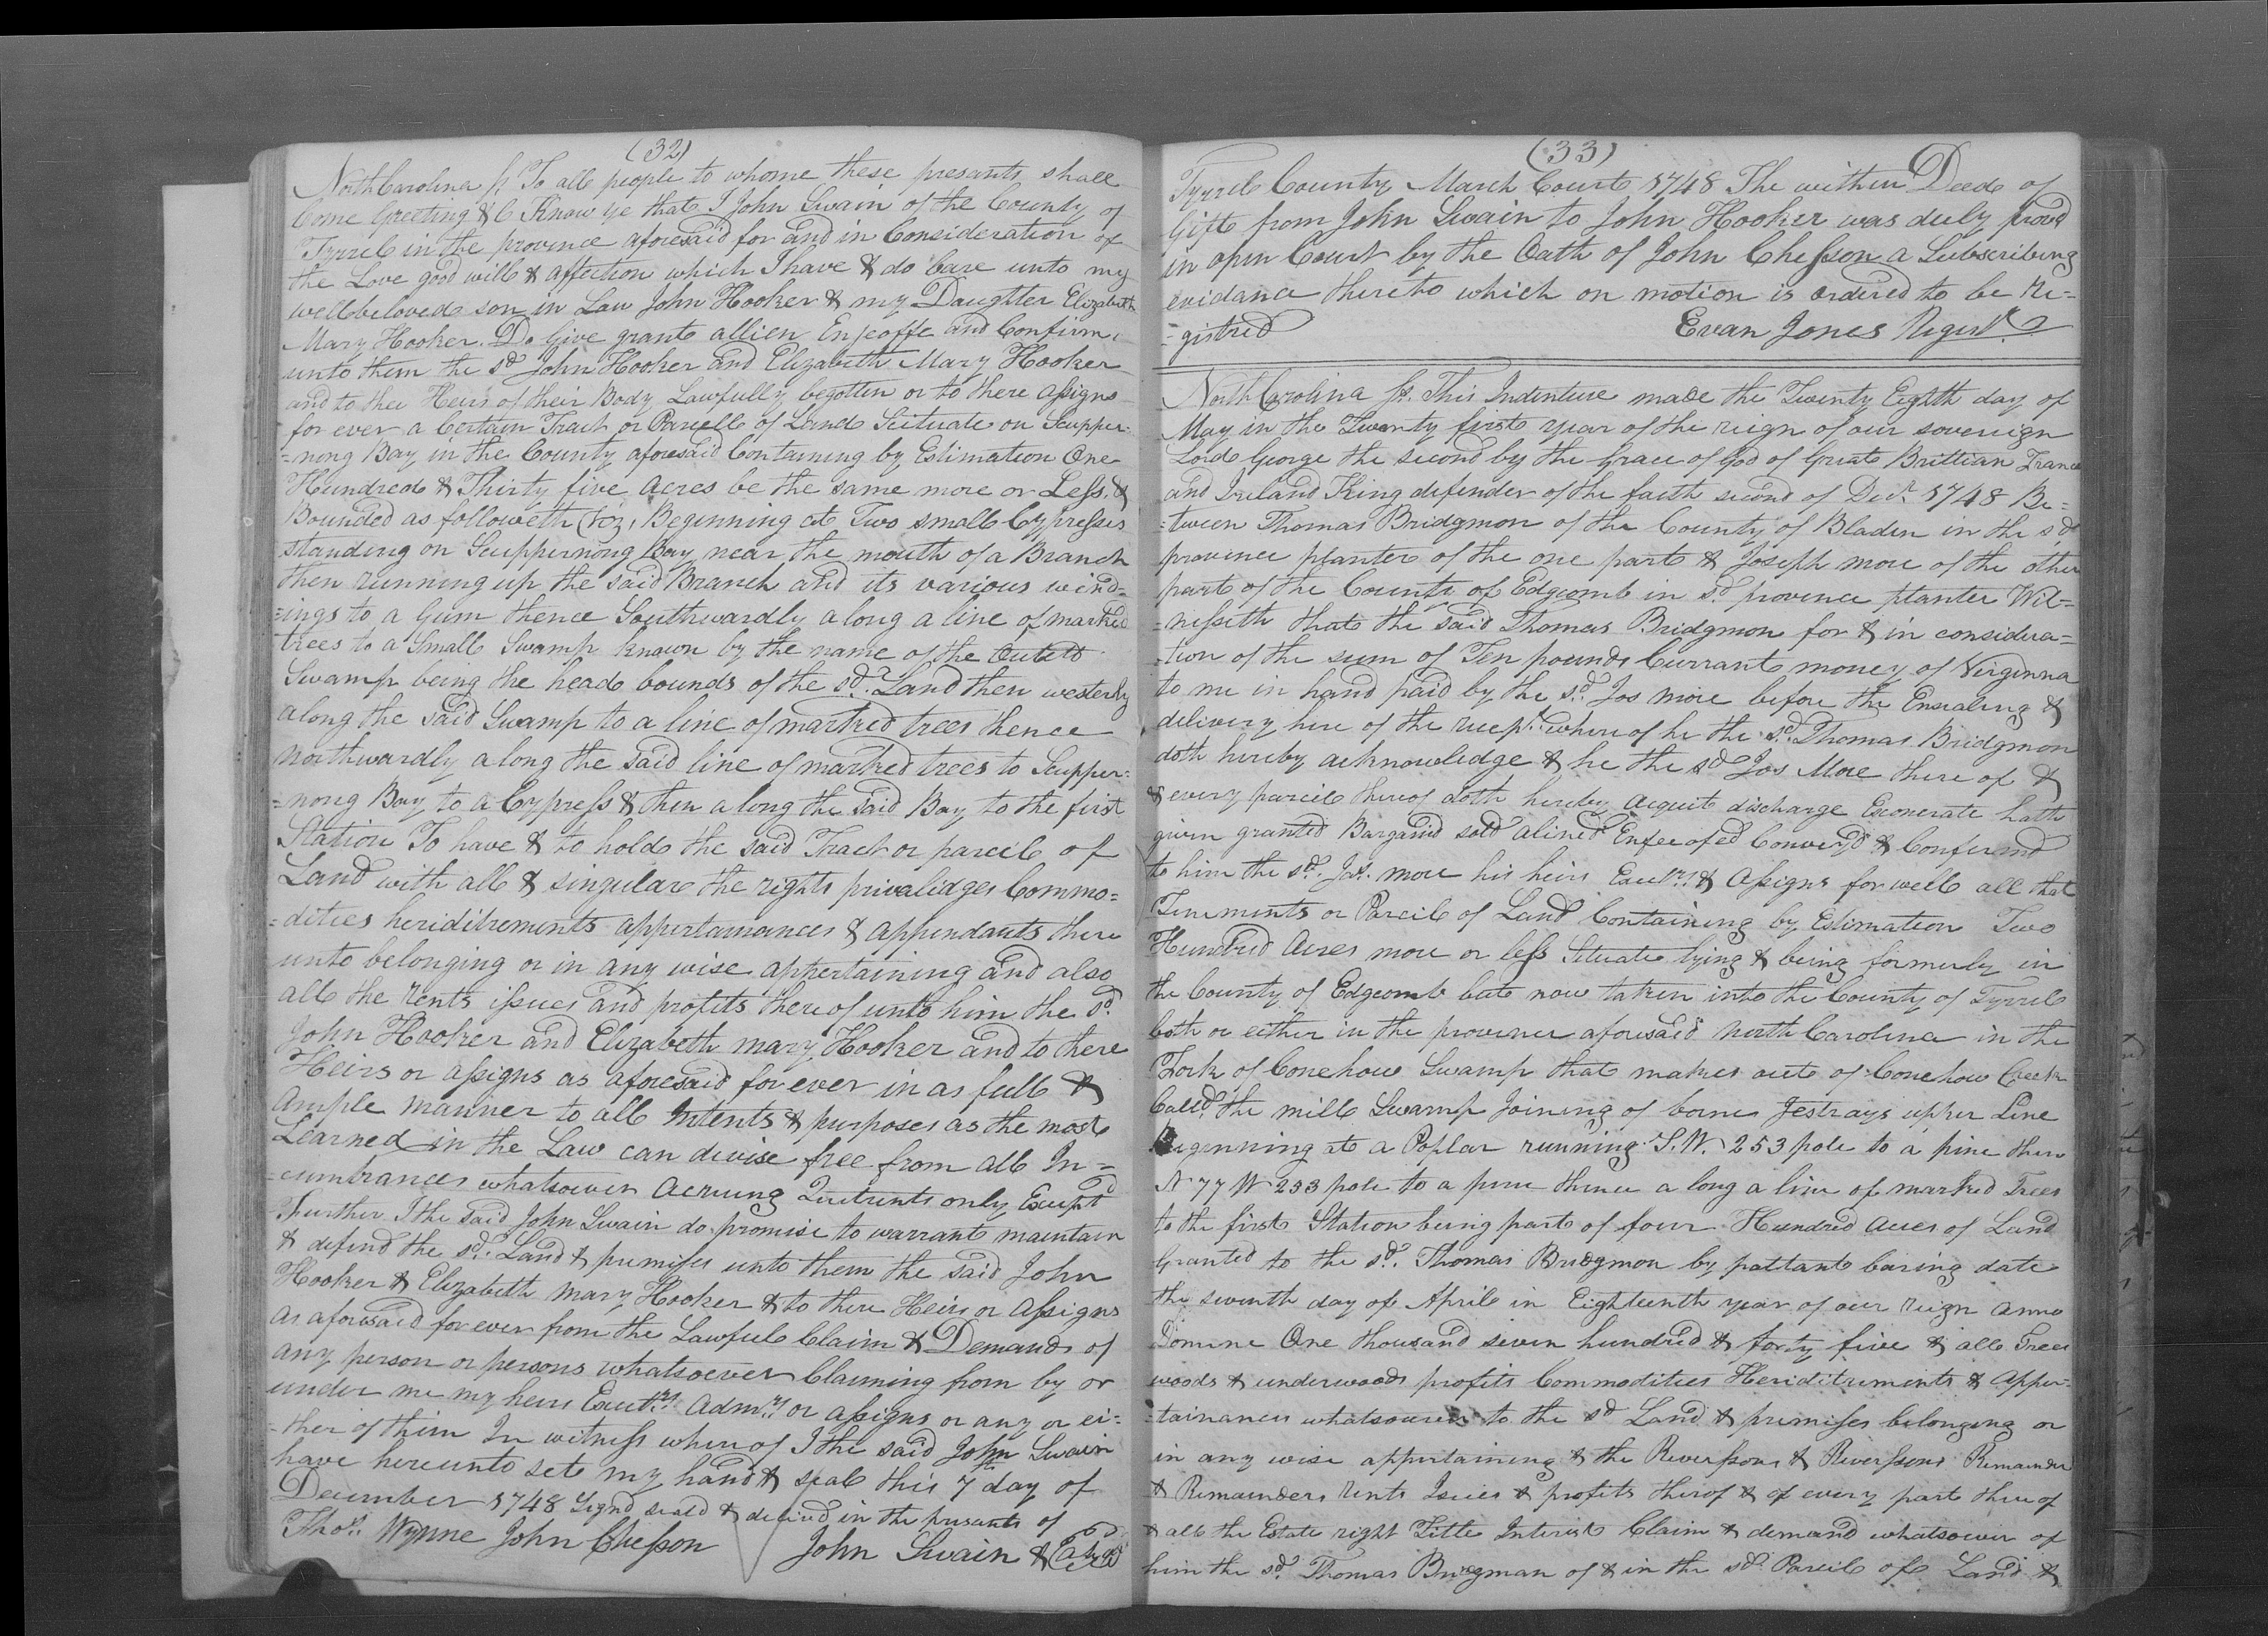 (32)
North Carolina ss To all people to whome these presants shall
Come Greeting &C Know ye that I John Swain of the County of
Tyrrel in the provence aforesaid for and in Consideration of
the Love good will & affection which I have & do bare unto my
well beloved son in Law John Hooker & my Daugtter Elizabeth
Mary Hooker. Do Give grant allien Enfeoffe and Confirm
unto them the sd John Hooker and Elizabeth Mary Hooker
and to thee Heirs of their Body Lawfully begotten or to there assigns
for ever a Certain Tract or Parcell of Land Scituate on Scupper=
=nong Bay in the County aforesaid Containing by Estimation One
Hundred & Thirty five acres be the same more or Less, &
Bounded as followeth (viz, Beginning at Two small Cypresses
standing on Scuppernong Bay near the mouth of a Branch
then running up the said Branch and its various wind=
=ings to a Gum thence Southwardly along a line of marked
trees to a Small Swamp known by the name of the
Swamp being the head bounds of the sd. Land then westerly
along the said Swamp to a line of marked trees thence
Northwardly along the said line of marked trees to Scupper=
=nong Bay to a Cypress & then along the said Bay to the first
Station To have & to hold the said Tract or parcel of
Land with all & singular the rights privalidges Commo=
=dities heriditrements appertainances & appendants there
unto belonging or in any wise appertaining and also
all the rents issues and profits thereof unto him the sd.
John Hooker and Elizabeth mary Hooker and to there
Heirs or assigns as aforesaid for ever in as full &
Ample manner to all Intents & purposes as the most
Learned in the Law can devise free from all In=
=cumbrances whatsoever Acruing Quitrents only Exceptd
Further I the said John Swain do promise to warrant maintain
& defend the sd. Land & premises unto them the said John
Hooker & Elizabeth Mary Hooker & to there Heirs or Assigns
as aforesaid for ever from the Lawful Claim & Demands of
any person or persons whatsoever Claiming from by or
under me my heirs Exectrs Admrs or assigns or any or ei=
=ther of them In witness where of I the said John Swain
have hereunto set my hand & seal this 7th day of
December 1748 Signd seald & decived in the presants of
Thos. Wynne John Chesson John Swain & Seal
(33)
Tyrrel County March Court 1748 The within Deed of
Gift from John Swain to John Hooker was duly provd
in opin Court by the Oath of John Chesson a Subscribing
evidance thereto which on motion is ordered to be Re=
=gistred Evan Jones Regisr.
North Carolina ss. This Indenture made the Twenty Eighth day of
May in the Twenty first year of the reign of our sovereign
Lord George the second by the Grace of God of Great Brittian France
and Ireland King defender of the faith second of Decr. 1748 Be=
=tween Thomas Bridgmon of the County of Bladen in the sd
provence planter of the one part & Joseph more of the other
part of the County of Edgcomb in sd. provence planter Wit=
=nesseth that the said Thomas Bridgmon for & in considera=
=tion of the sum of Ten pounds Currant money of Virginna
to me in hand paid by the sd. Jos more before the Ensealing &
delivery here of the recept. where of he the sd. Thomas Bridgmon
doth hereby acknowledge & he the sd Jos More there of &
& every parcil thereof doth hereby Acquit discharge Exonerate hath
given granted Barganid sold alined Enfeeofed Conveyd & Confirmd
to him the sd. Jos. more his heirs Exectrs & Assigns for well all that
Tinements or Parcil of Land Containing by Estimation Two
Hundred Acres more or less Situate lying & being formerly in
the County of Edgcomb but now taken into the County of Tyrrel
both or either in the provence aforesaid North Carolina in the
Fork of Conehow Swamp that makes out of Conehow Creek
Calld. the mill Swamp Joining of upper Line
Beginning at a Poplar running S.W. 253 pole to a pine then
N 77 W 253 pole to a pine thence along a line of marked Trees
to the first Station being part of four Hundred acres of Land
Granted to the sd. Thomas Bridgmon by pattant baring date
the seventh day of April in Eighteenth year of our reign anno
Domine One thousand seven hundred & forty five & all Trees
woods & underwoods profits Commodities Heriditements & Apper=
=tainances whatsoever to the sd Land & premises belonging or
in any wise appertaining & the Reverssons & Reverssons Remainder
& Remainders rents Issues & profits therof & of every part there of
& all the Estate right Title Interist Claim & demand whatsoever of
him the sd. Thomas Bridgman of & in the sd. Parcil of Land &